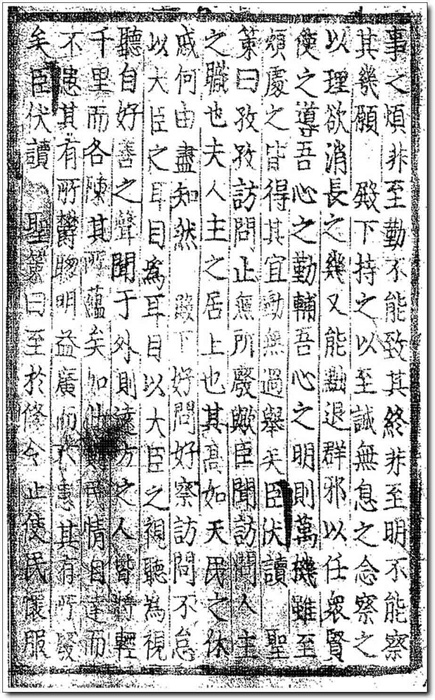 事之煩非至勤不能致其終非至明不能察
其幾願 殿下持之以至誠無息之念察之
以理欲消長之幾又能黜退群邪以任衆賢
使之導吾心之勤輔吾心之明則萬機雖至
煩處之皆得其宜動無過舉矣臣伏讀 聖
策曰孜孜訪問止無所廢歟臣聞訪問人主
之職也夫人主之居上也其高如天民之休
戚何由盡知然 殿下好問好察訪問不怠
以大臣之耳目爲耳目以大臣之視聽為視
聽自好善之聲聞于外則遠方之人皆將輕
千里而各陳其所蘊矣如此則民情自達而
不患其有所鬱聦明益廣而不患其有所
矣臣伏讀 聖策曰至於條令止使民懷服